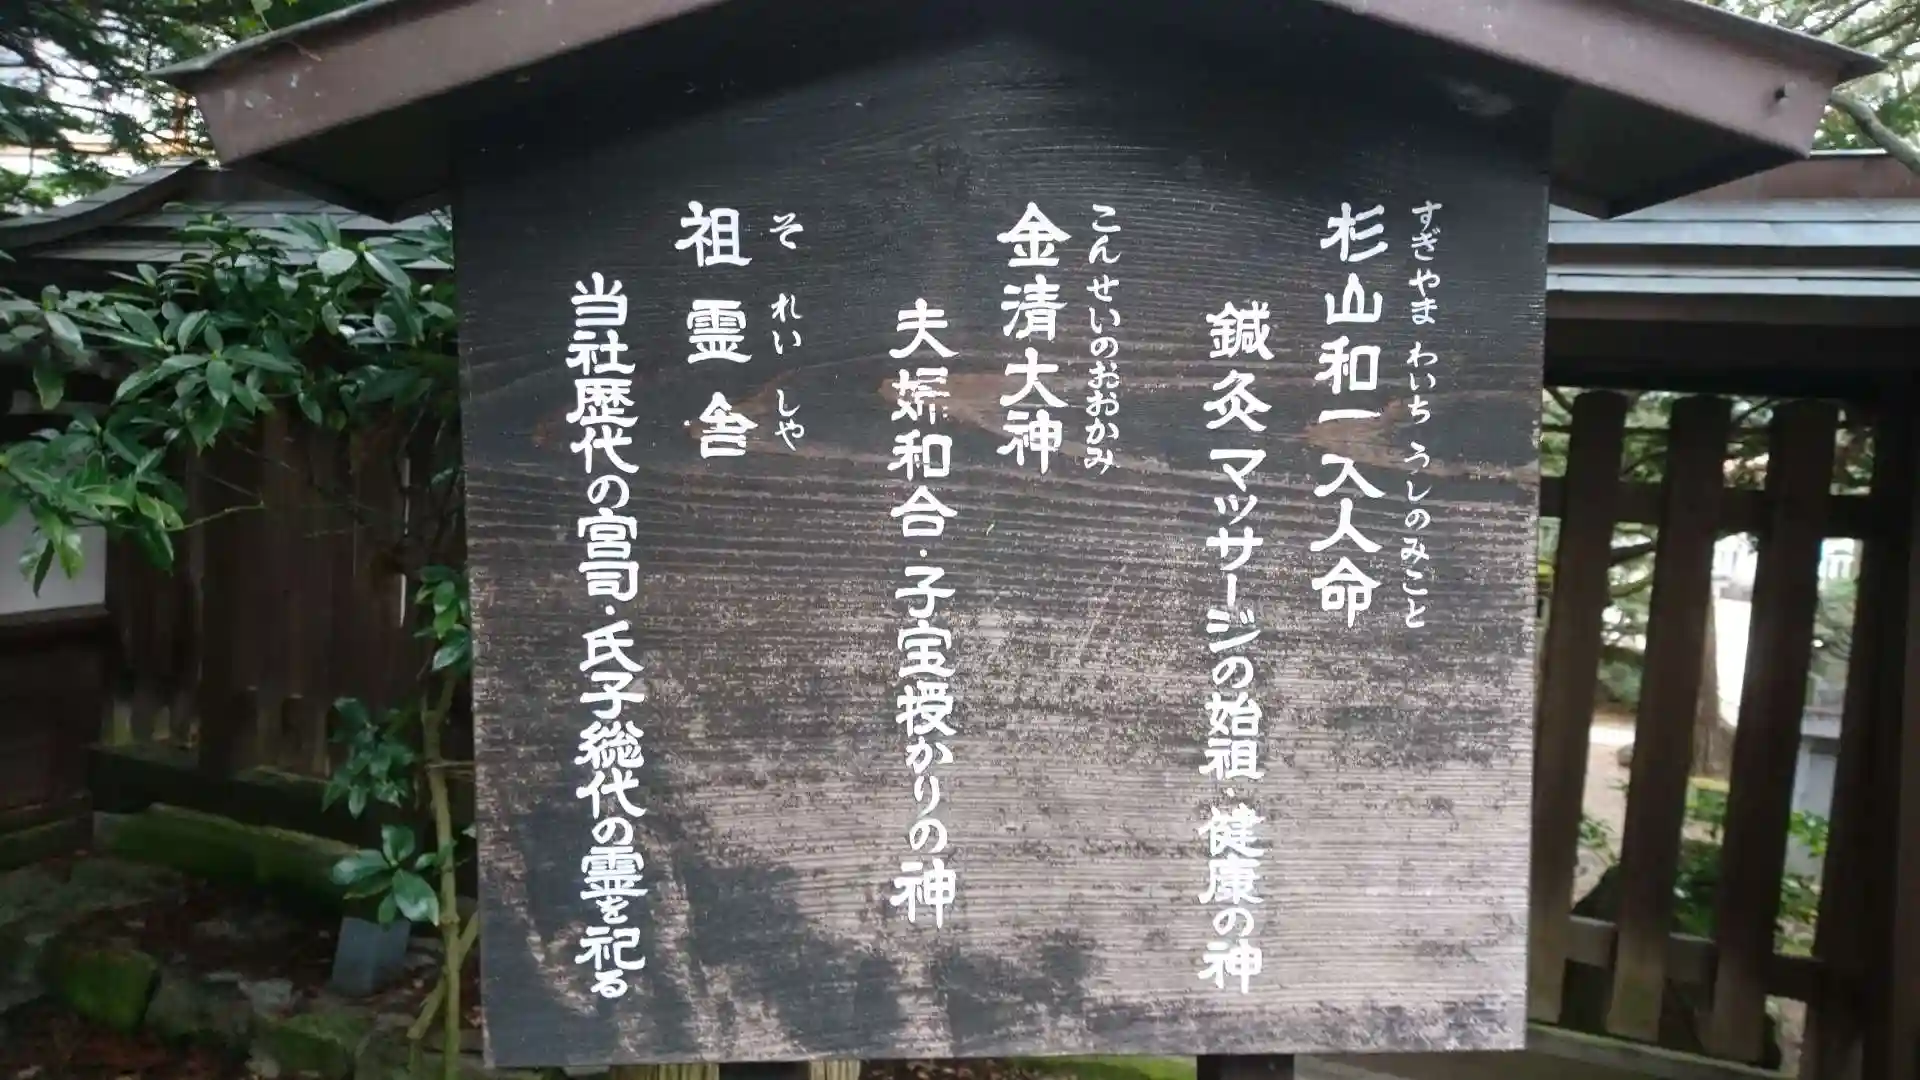 すぎやま わいち うしのみこと
杉山和一入人命
鍼灸マッサージの始祖・健康の神
こんせいのおおかみ
金清大神
夫婦和合・子宝授かりの神
それいしや
祖霊舎
当社歴代の宮司・氏子総代の霊を祀る